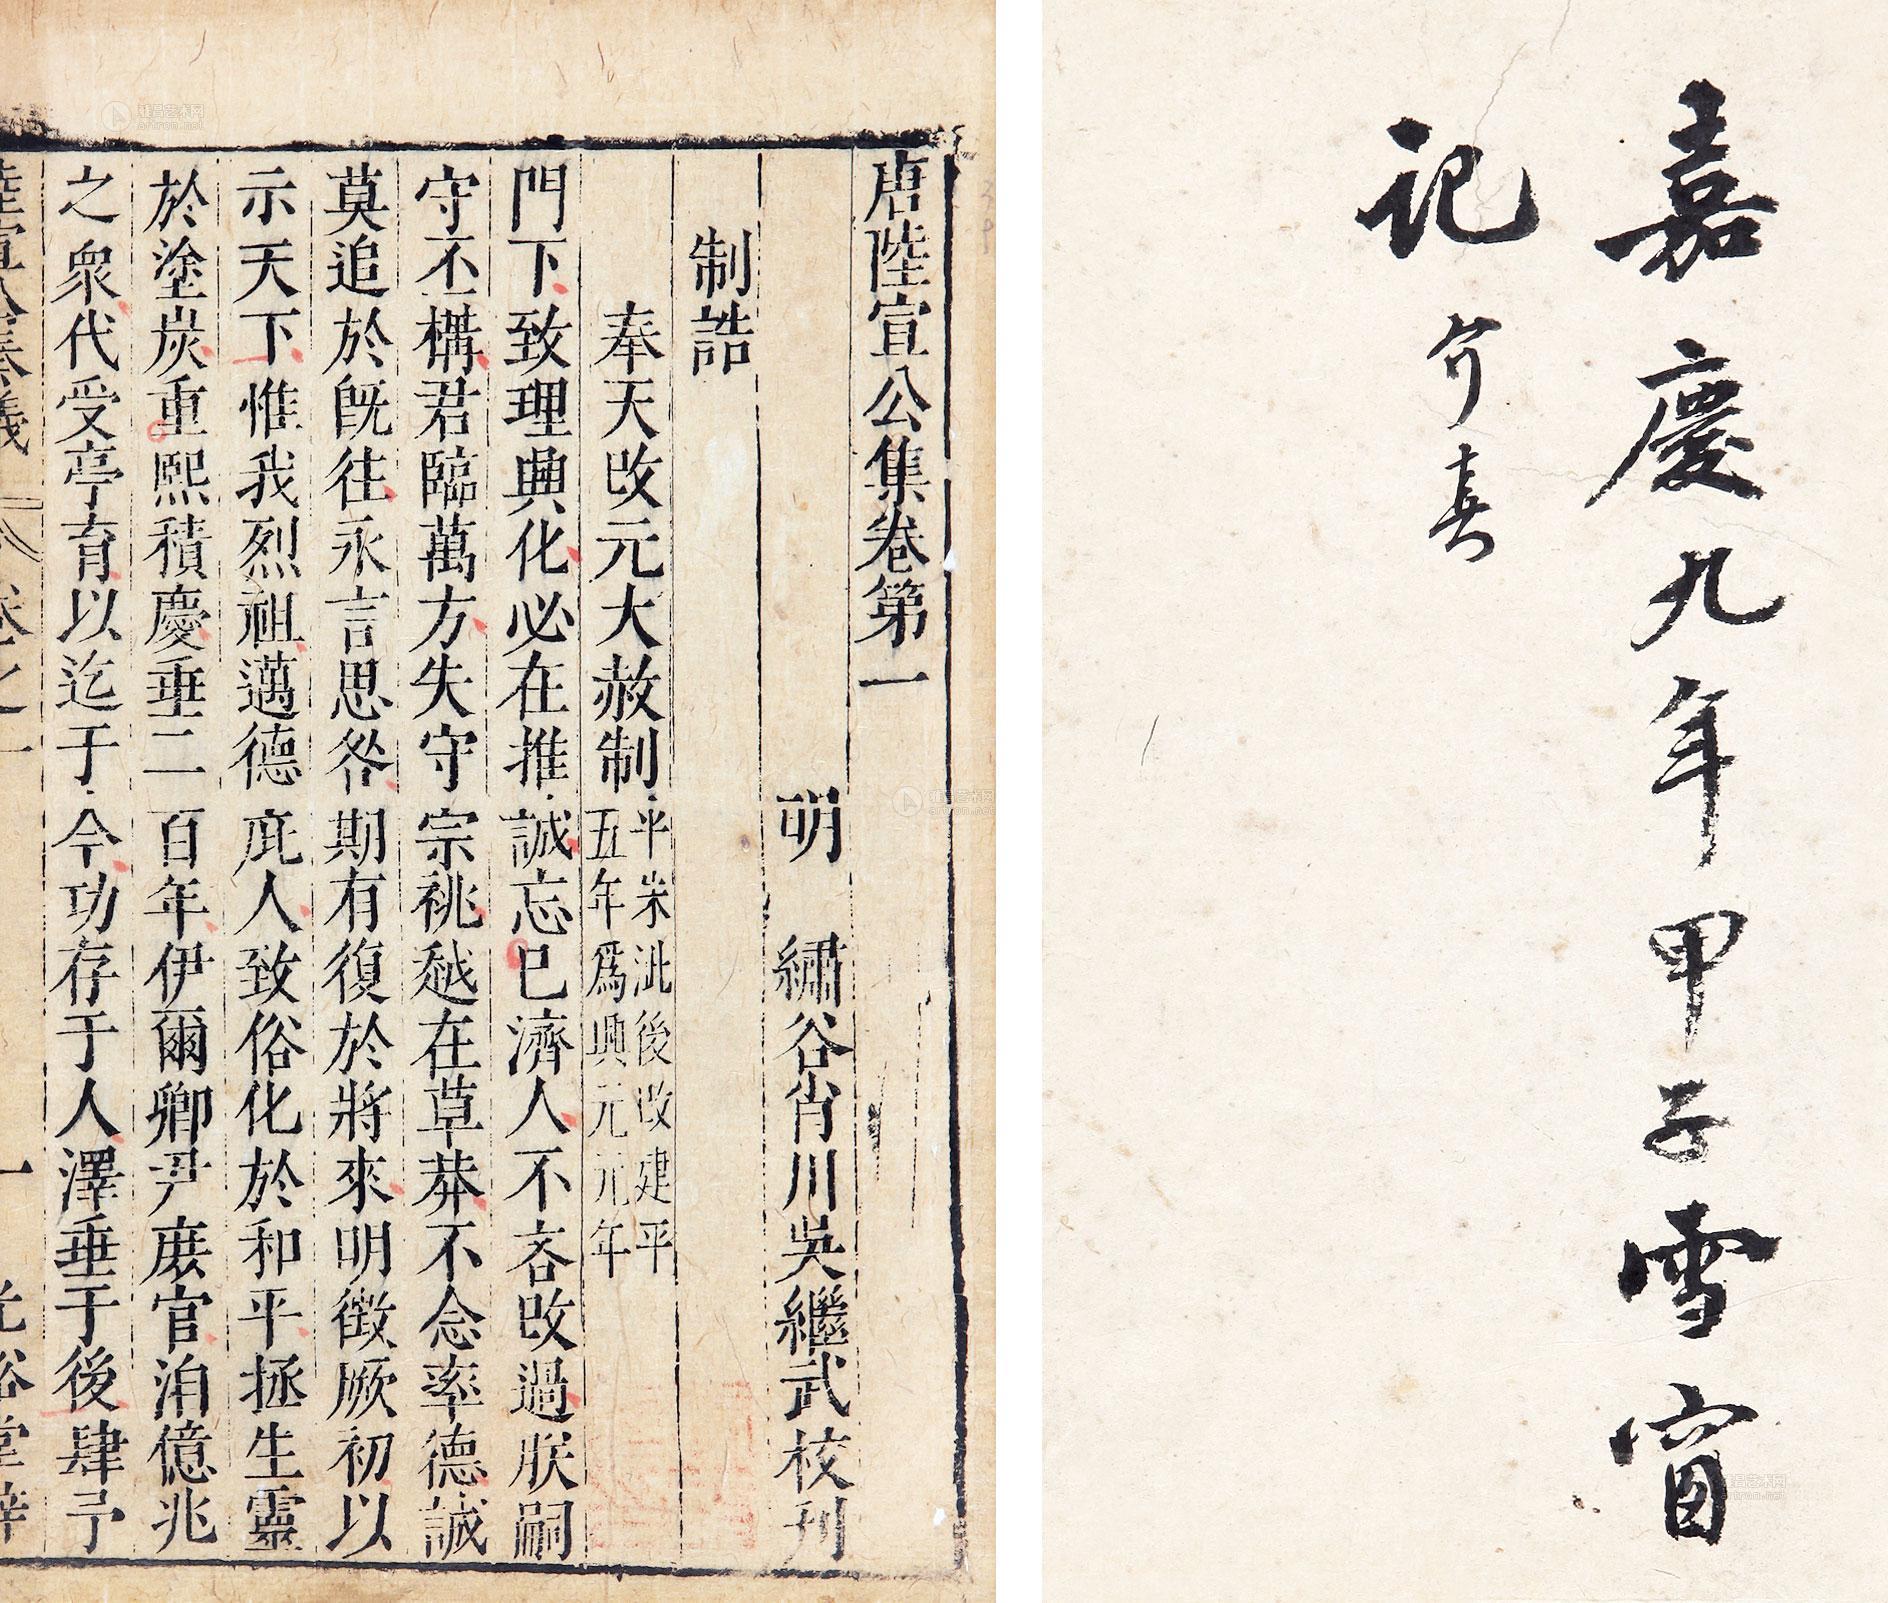 嘉慶九年甲子雪窗
記
唐陸宣公集卷第一
明 繡谷肖川吳繼武校刊
制誥
奉天改元大赦制 平朱泚後改建平
五年爲興元元年
門下致理興化必在推誠忘已濟人不吝改過朕嗣
守丕構君臨萬方失守宗祧越在草莽不念率德誠
莫追於旣往永言思咎期有復於將來明徵厥初以
示天下惟我烈祖邁德庇人致俗化於和平拯生靈
於塗炭重熙積慶垂二百年伊爾卿尹庶官洎億兆
之衆代受亭育以迄于今功存于人澤垂于後肆予
陸宣公奏議 卷之一 一 光裕堂梓
雅昌艺术网
artron.net